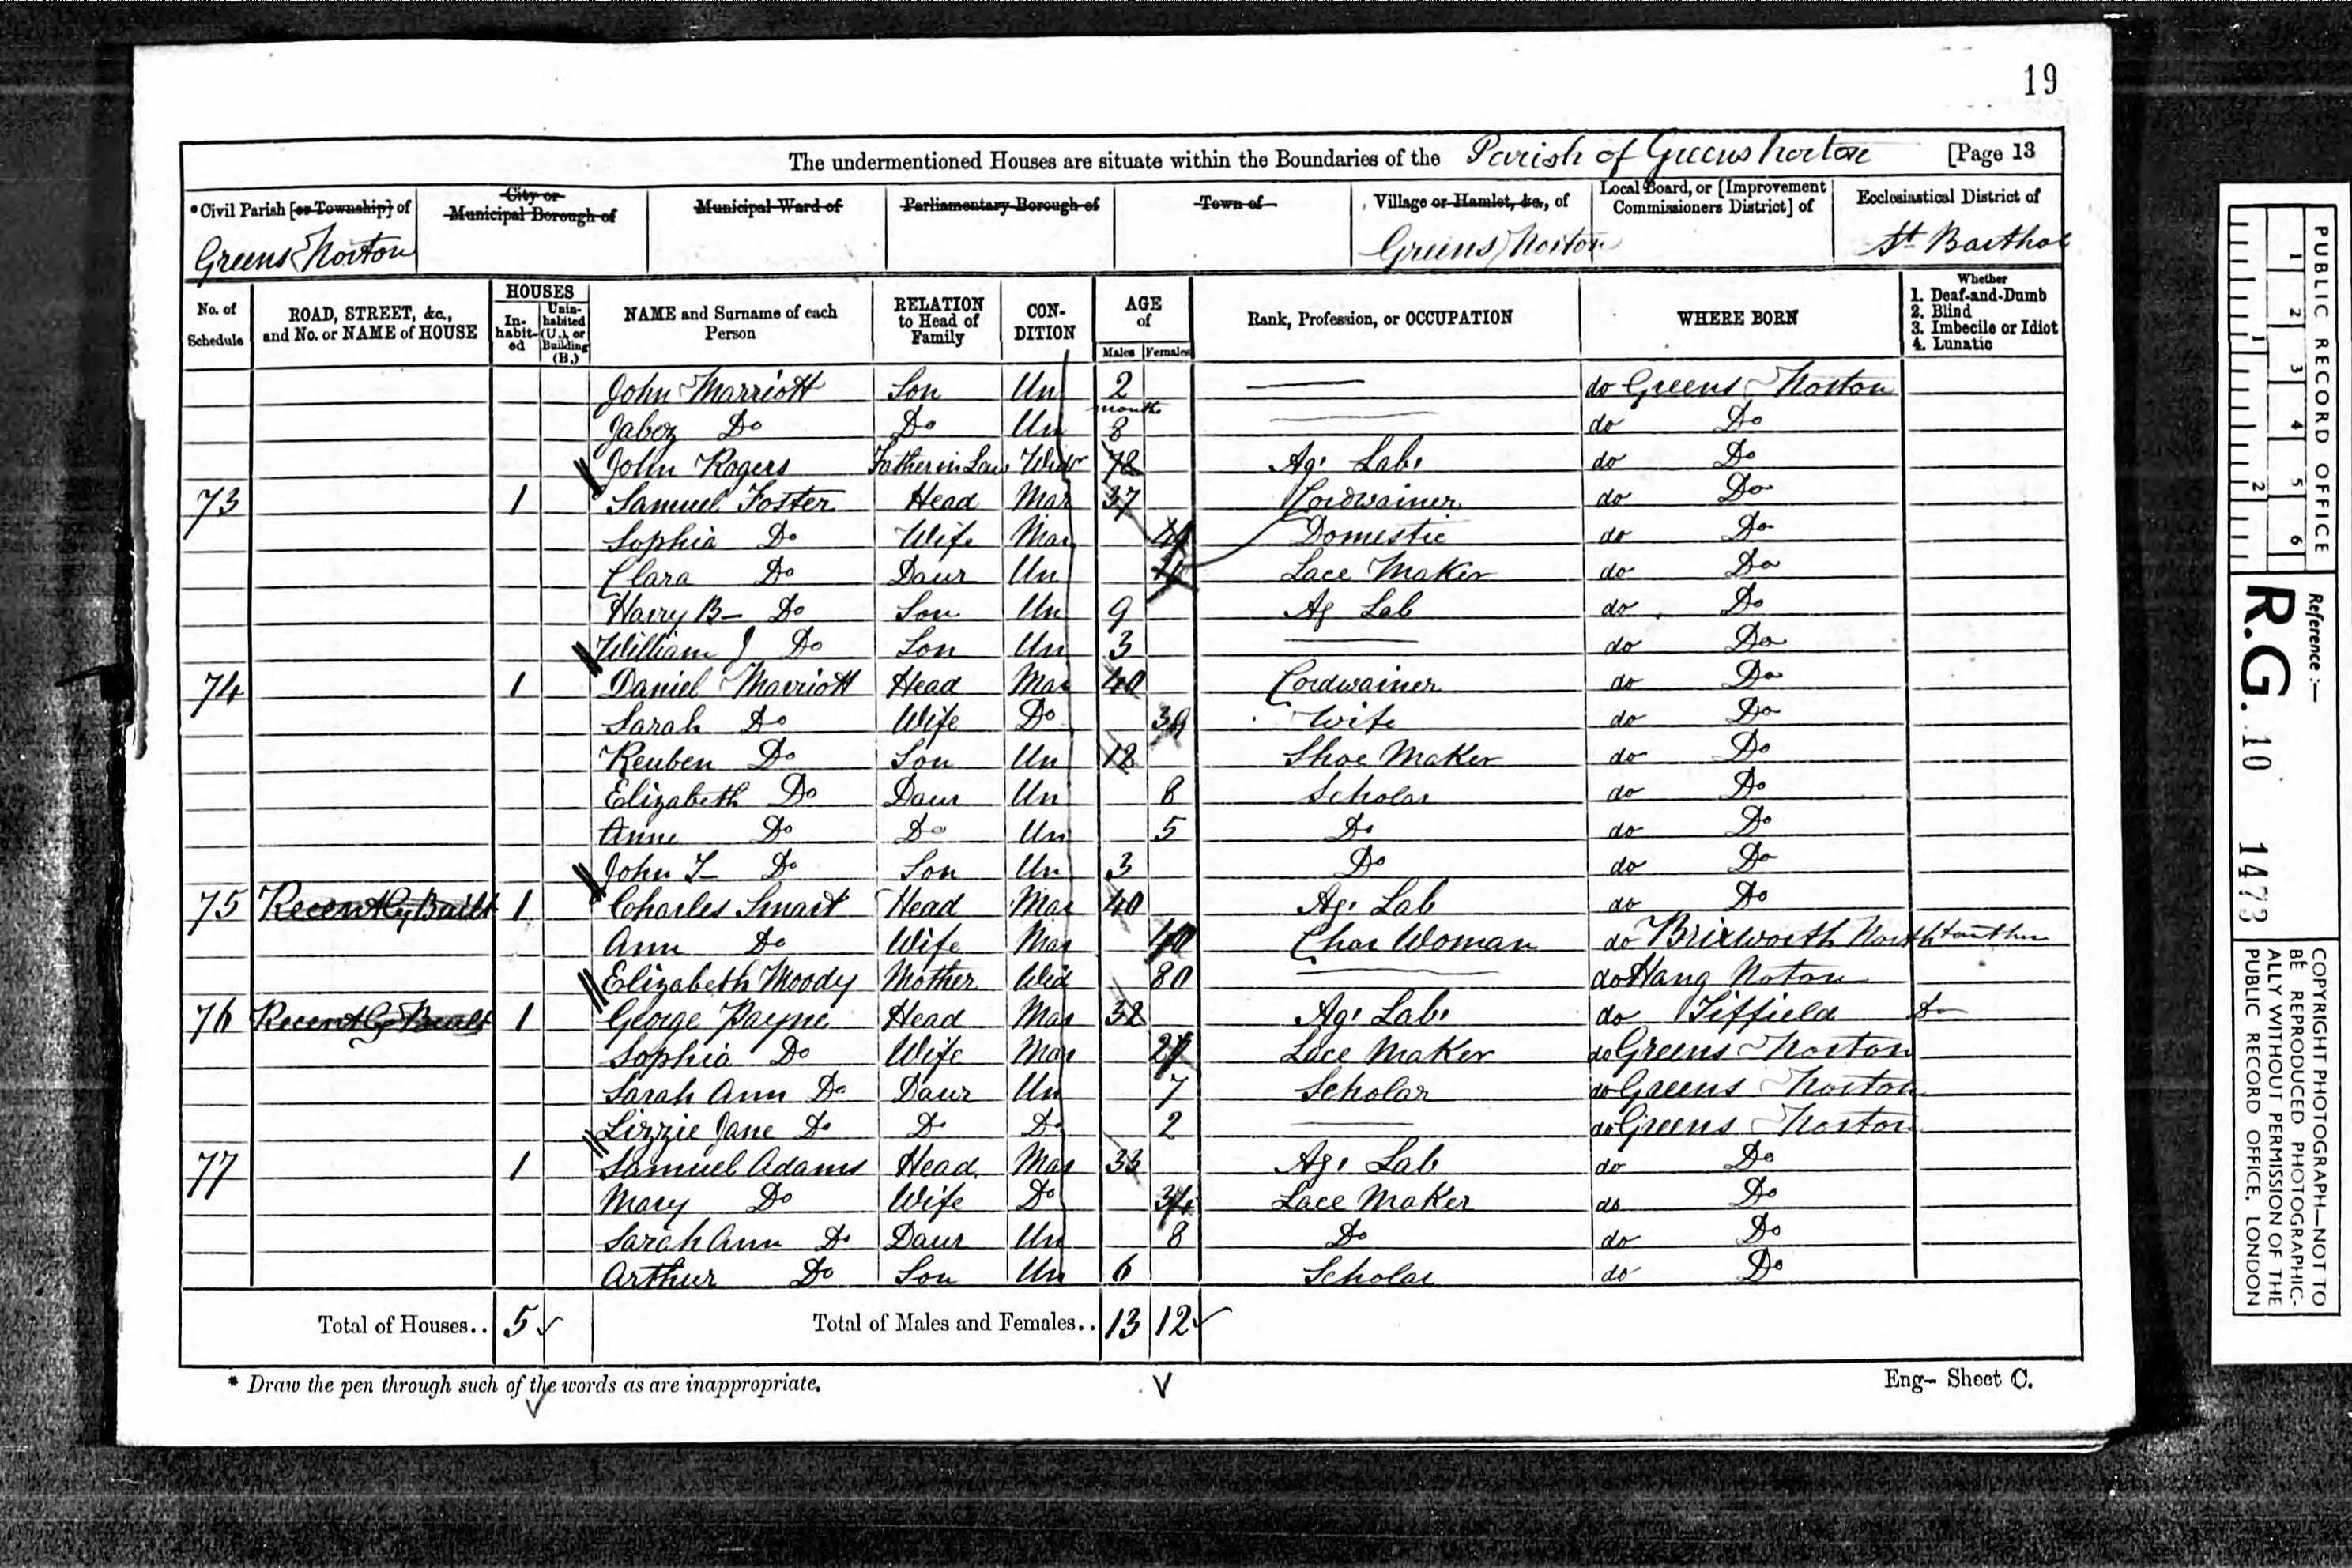 19
The undermentioned Houses are situate within the Boundaries of the Parish of Greens Norton [Page 13
*Civil Parish [or Township] of Greens Norton
City or Municipal Borough of
Municipal Ward of
Parliamentary Borough of
Town of
Village or Hamlet, &c., of Greens Norton
Local Board, or [Improvement Commissioners District] of
Ecclesiastical District of St Barthol
No. of Schedule
ROAD, STREET, &c., and No. or NAME of HOUSE
HOUSES
In-habit-ed
Unin-habited (U.), or Building (B.)
NAME and Surname of each Person
RELATION to Head of Family
CON-DITION
AGE of
Males Females
Rank, Profession, or OCCUPATION
WHERE BORN
Whether
1. Deaf-and-Dumb
2. Blind
3. Imbecile or Idiot
4. Lunatic
John Marriott Son Un 2 do Greens Norton
Jabez Do Do Un months 8 do Do
John Rogers Father in Law Widr 78 Ag. Lab. do Do
73 1 Samuel Foster Head Mar 37 Cordwainer do Do
Sophia Do Wife Mar Domestic do Do
Clara Do Daur Un Lace Maker do Do
Harry B Do Son Un 9 Ag Lab do Do
William J Do Son Un 3 do Do
74 1 Daniel Marriott Head Mar 40 Cordwainer do Do
Sarah Do Wife Do 39 Wife do Do
Reuben Do Son Un 12 Shoe Maker do Do
Elizabeth Do Daur Un 8 Scholar do Do
Anne Do Do Un 5 Do do Do
John T Do Son Un 3 Do do Do
75 Recently Built 1 Charles Smart Head Mar 40 Ag. Lab do Do
Ann Do Wife Mar 40 Char Woman do Brixworth
Elizabeth Moody Mother Wid 80 do Hang Noton
76 Recently Built 1 George Payne Head Mar 32 Ag. Lab. do Tiffield Do
Sophia Do Wife Mar 27 Lace Maker do Greens Norton
Sarah Ann Do Daur Un 7 Scholar do Greens Norton
Lizzie Jane Do Do Do 2 do Greens Norton
77 1 Samuel Adams Head Mar 33 Ag. Lab do Do
Mary Do Wife Do 34 Lace Maker do Do
Sarah Ann Do Daur Un 8 Do do Do
Arthur Do Son Un 6 Scholar do Do
Total of Houses.. 5
Total of Males and Females.. 13 12
* Draw the pen through such of the words as are inappropriate.
Eng— Sheet C.
PUBLIC RECORD OFFICE
1 2 3 4 5 6
1 2
Reference :—
R.G. 10 1473
COPYRIGHT PHOTOGRAPH—NOT TO BE REPRODUCED PHOTOGRAPHIC-ALLY WITHOUT PERMISSION OF THE PUBLIC RECORD OFFICE, LONDON